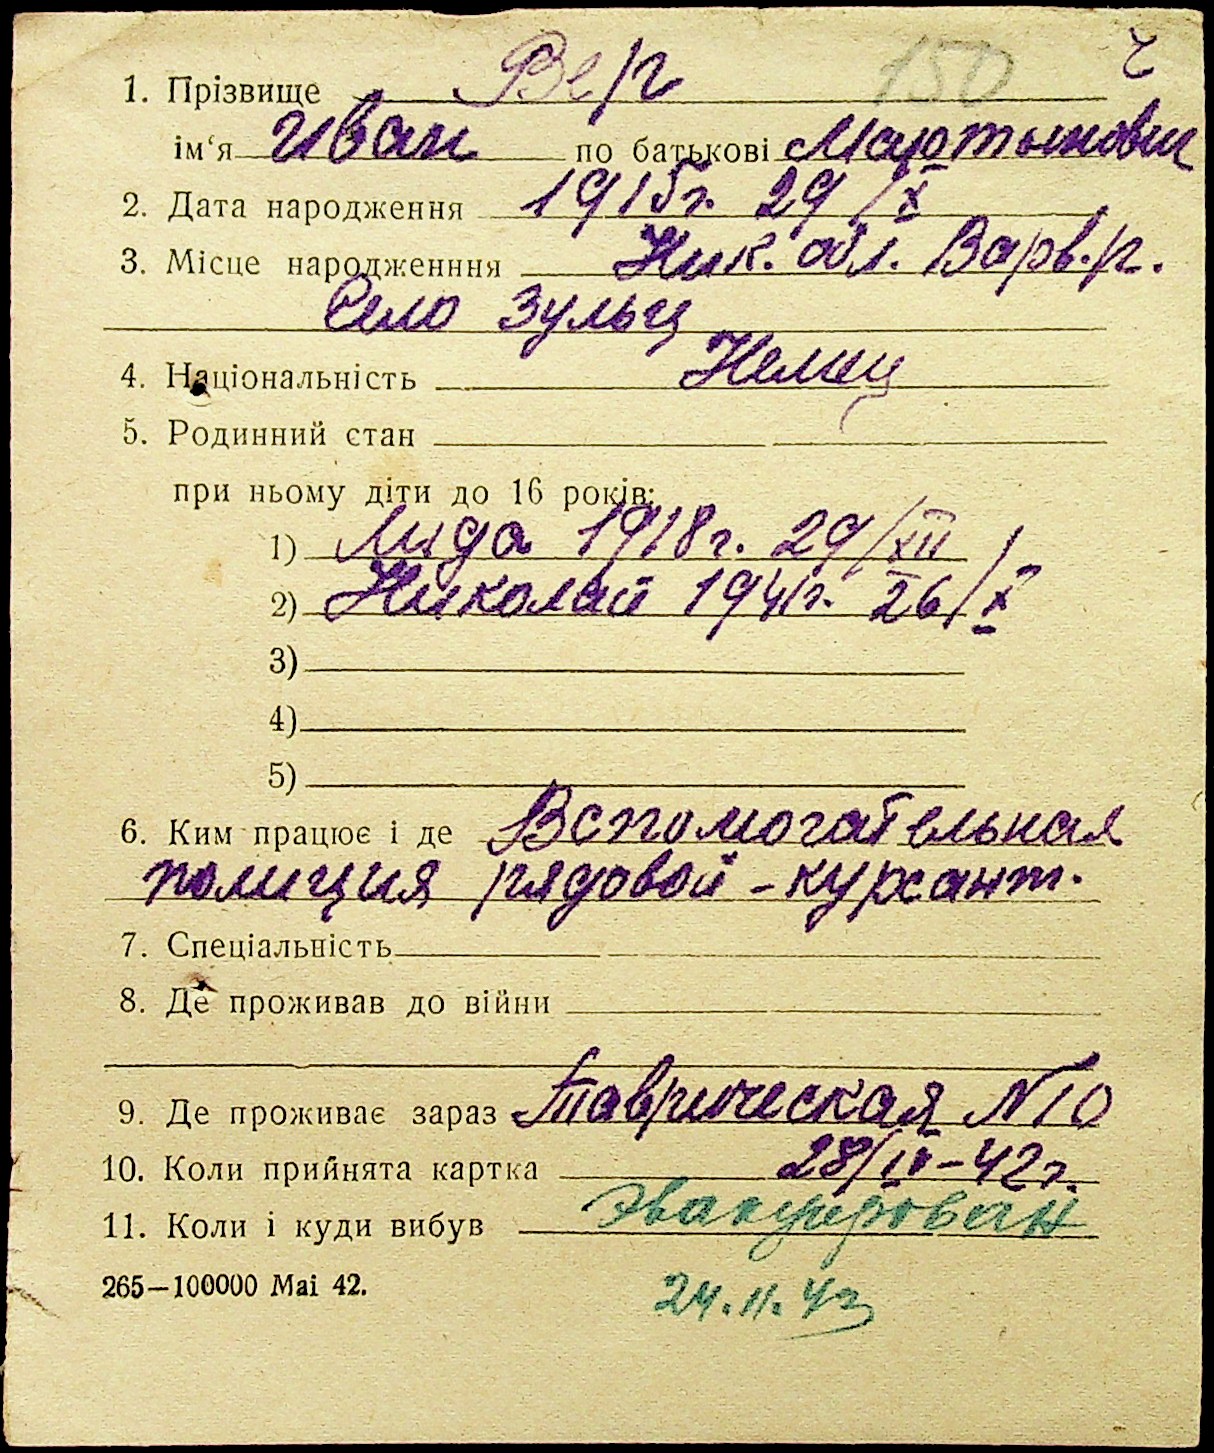 150 2
1. Прізвище Верг
ім‘я Иван по батькові Мартынович
2. Дата народження 1915г. 29/X
3. Місце народженння Ник. обл. Варв. р.
село Зульц
4. Національність Немец
5. Родинний стан
при ньому діти до 16 років:
1) Лида 1918г. 29/XII
2) Николай 1941г. 26/X
3)
4)
5)
6. Ким працює і де Вспомогательная
полиция рядовой-курсант.
7. Спеціальність
8. Де проживав до війни
9. Де проживає зараз Таврическая N10
10. Коли прийнята картка 28/IV-42г.
11. Коли і куди вибув Эвакуирован
265—100000 Mai 42.
24.11.42